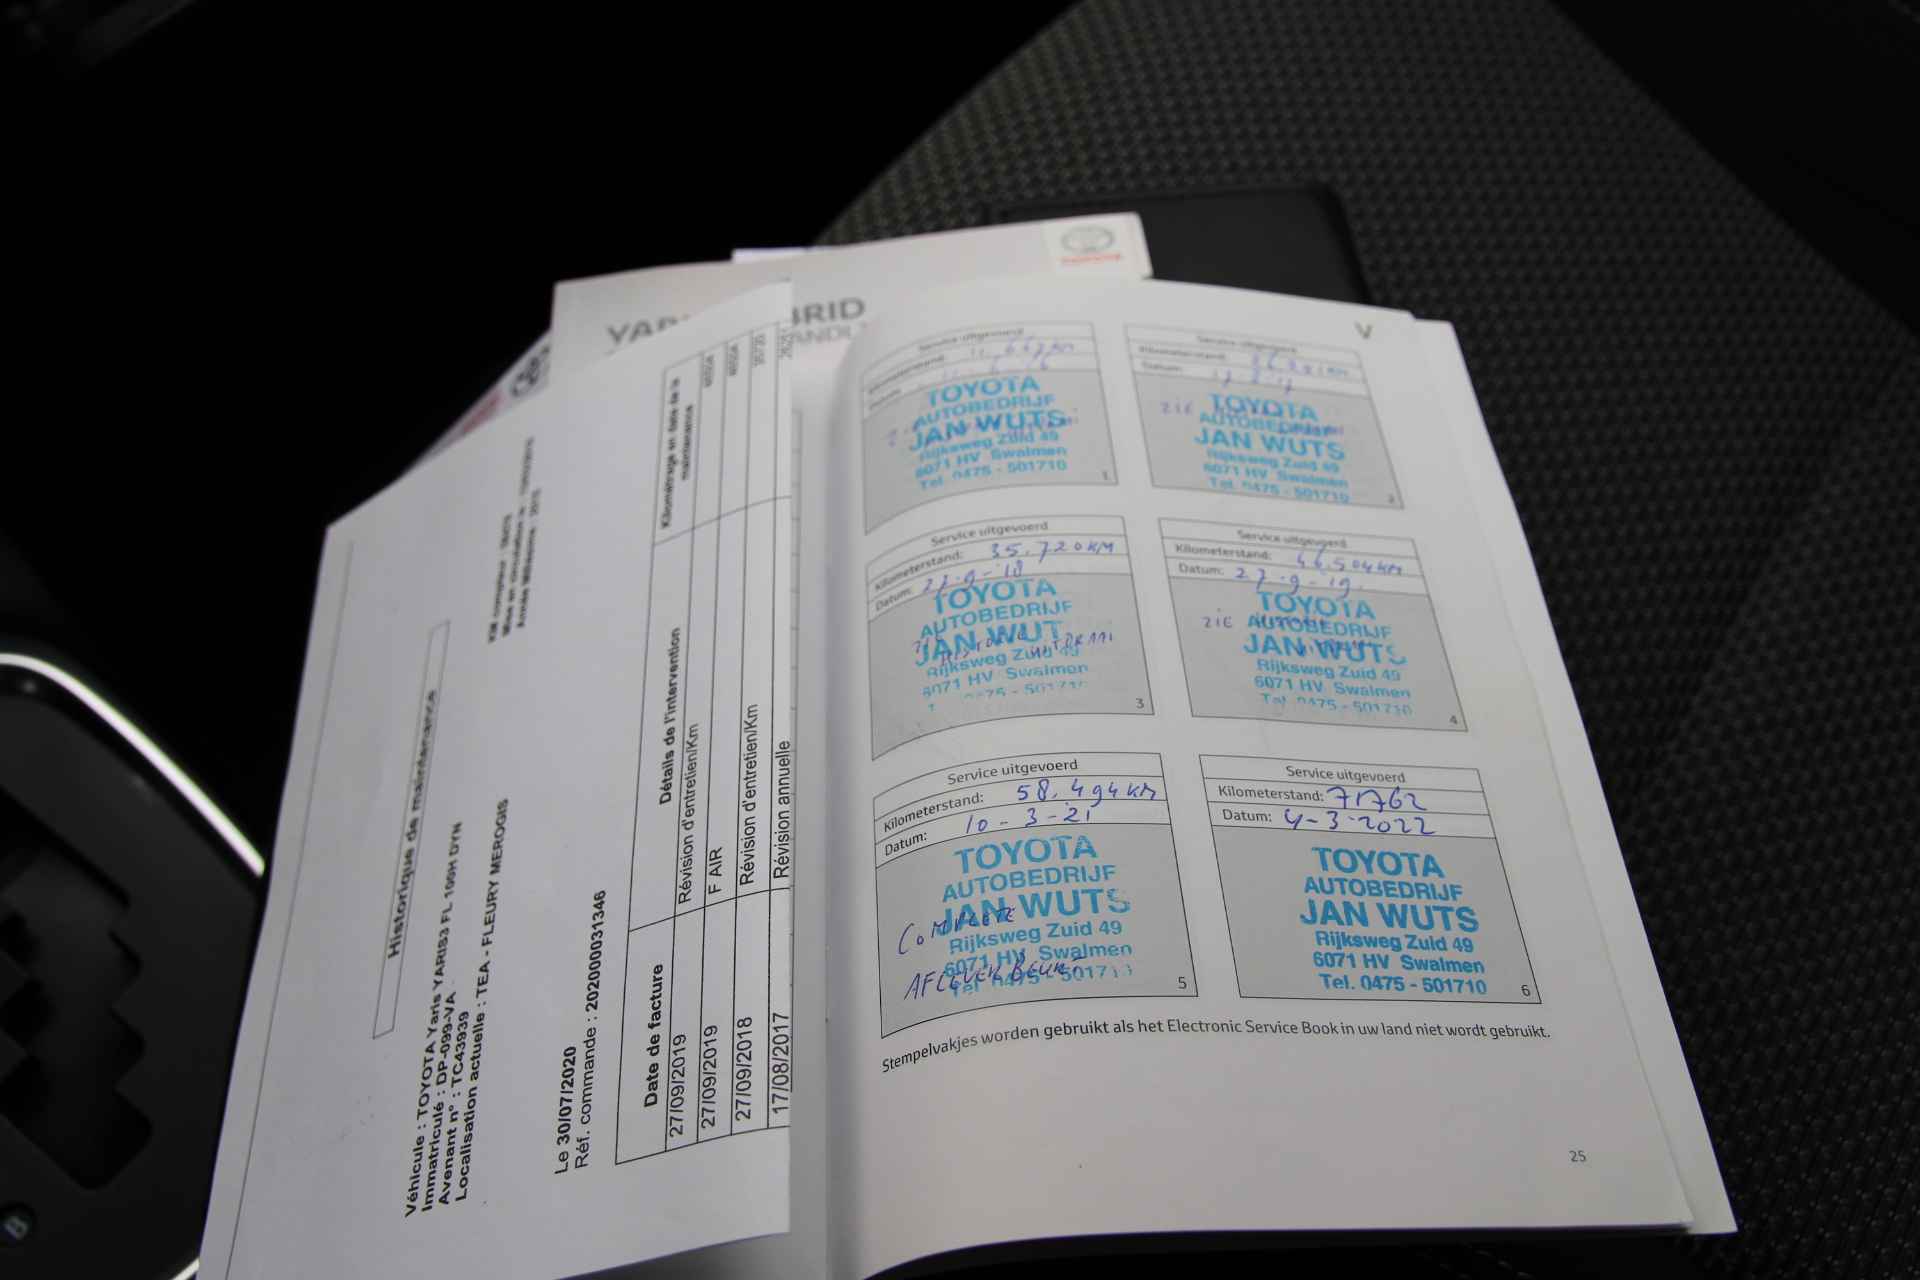 Historique de maintenance
Véhicule : TOYOTA Yaris YARIS3 FL 100H DYN
Immatriculé : DP-099-VA
Avenant n° : TC43939
Localisation actuelle : TEA - FLEURY MEROGIS
KM compteur :
Mise en circulation le :
Année Millésime : 2015
Le 30/07/2020
Réf. commande : 202000031346
Date de facture Détails de l'intervention Kilométrage en date de la maintenance
27/09/2019 Révision d'entretien/Km 46504
27/09/2019 F AIR 46504
27/09/2018 Révision d'entretien/Km 35720
17/08/2017 Révision annuelle
BRID
V
Service uitgevoerd
Kilometerstand:
Datum:
TOYOTA
AUTOBEDRIJF
JAN WUTS
Rijksweg Zuid 49
6071 HV Swalmen
Tel. 0475 - 501710
1
Service uitgevoerd
Kilometerstand:
Datum:
ZIE
TOYOTA
AUTOBEDRIJF
JAN WUTS
Rijksweg Zuid 49
6071 HV Swalmen
Tel. 0475 - 501710
2
Service uitgevoerd
Kilometerstand: 35.720KM
Datum: 27-9-'18
TOYOTA
AUTOBEDRIJF
JAN WUT
Rijksweg Zuid 49
6071 HV Swalmen
3
Service uitgevoerd
Kilometerstand: 46.504KM
Datum: 27-9-'19.
ZIE
TOYOTA
AUTOBEDRIJF
JAN WUTS
Rijksweg Zuid 49
6071 HV Swalmen
Tel. 0475 - 501710
4
Service uitgevoerd
Kilometerstand: 58.494KM
Datum: 10-3-21
TOYOTA
AUTOBEDRIJF
JAN WUTS
COMPLETE
Rijksweg Zuid 49
6071 HV Swalmen
AFLEVERBEURT
Tel. 0475 - 501710
5
Service uitgevoerd
Kilometerstand: 71762
Datum: 4-3-2022
TOYOTA
AUTOBEDRIJF
JAN WUTS
Rijksweg Zuid 49
6071 HV Swalmen
Tel. 0475 - 501710
6
Stempelvakjes worden gebruikt als het Electronic Service Book in uw land niet wordt gebruikt.
25
B